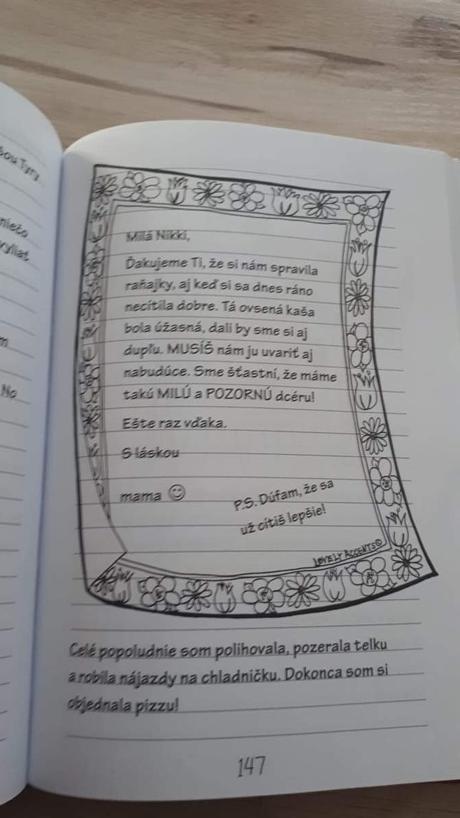 šou Tyry
niečo
vyliať
m
No
Milá Nikki,
Ďakujeme Ti, že si nám spravila
raňajky, aj keď si sa dnes ráno
necítila dobre. Tá ovsená kaša
bola úžasná, dali by sme si aj
dupľu. MUSÍŠ nám ju uvariť aj
nabudúce. Sme šťastní, že máme
takú MILÚ a POZORNÚ dcéru!
Ešte raz vďaka.
S láskou
mama
P.S. Dúfam, že sa
už cítiš lepšie!
LOVELY ACCENTS©
Celé popoludnie som polihovala, pozerala telku
a robila nájazdy na chladničku. Dokonca som si
objednala pizzu!
147